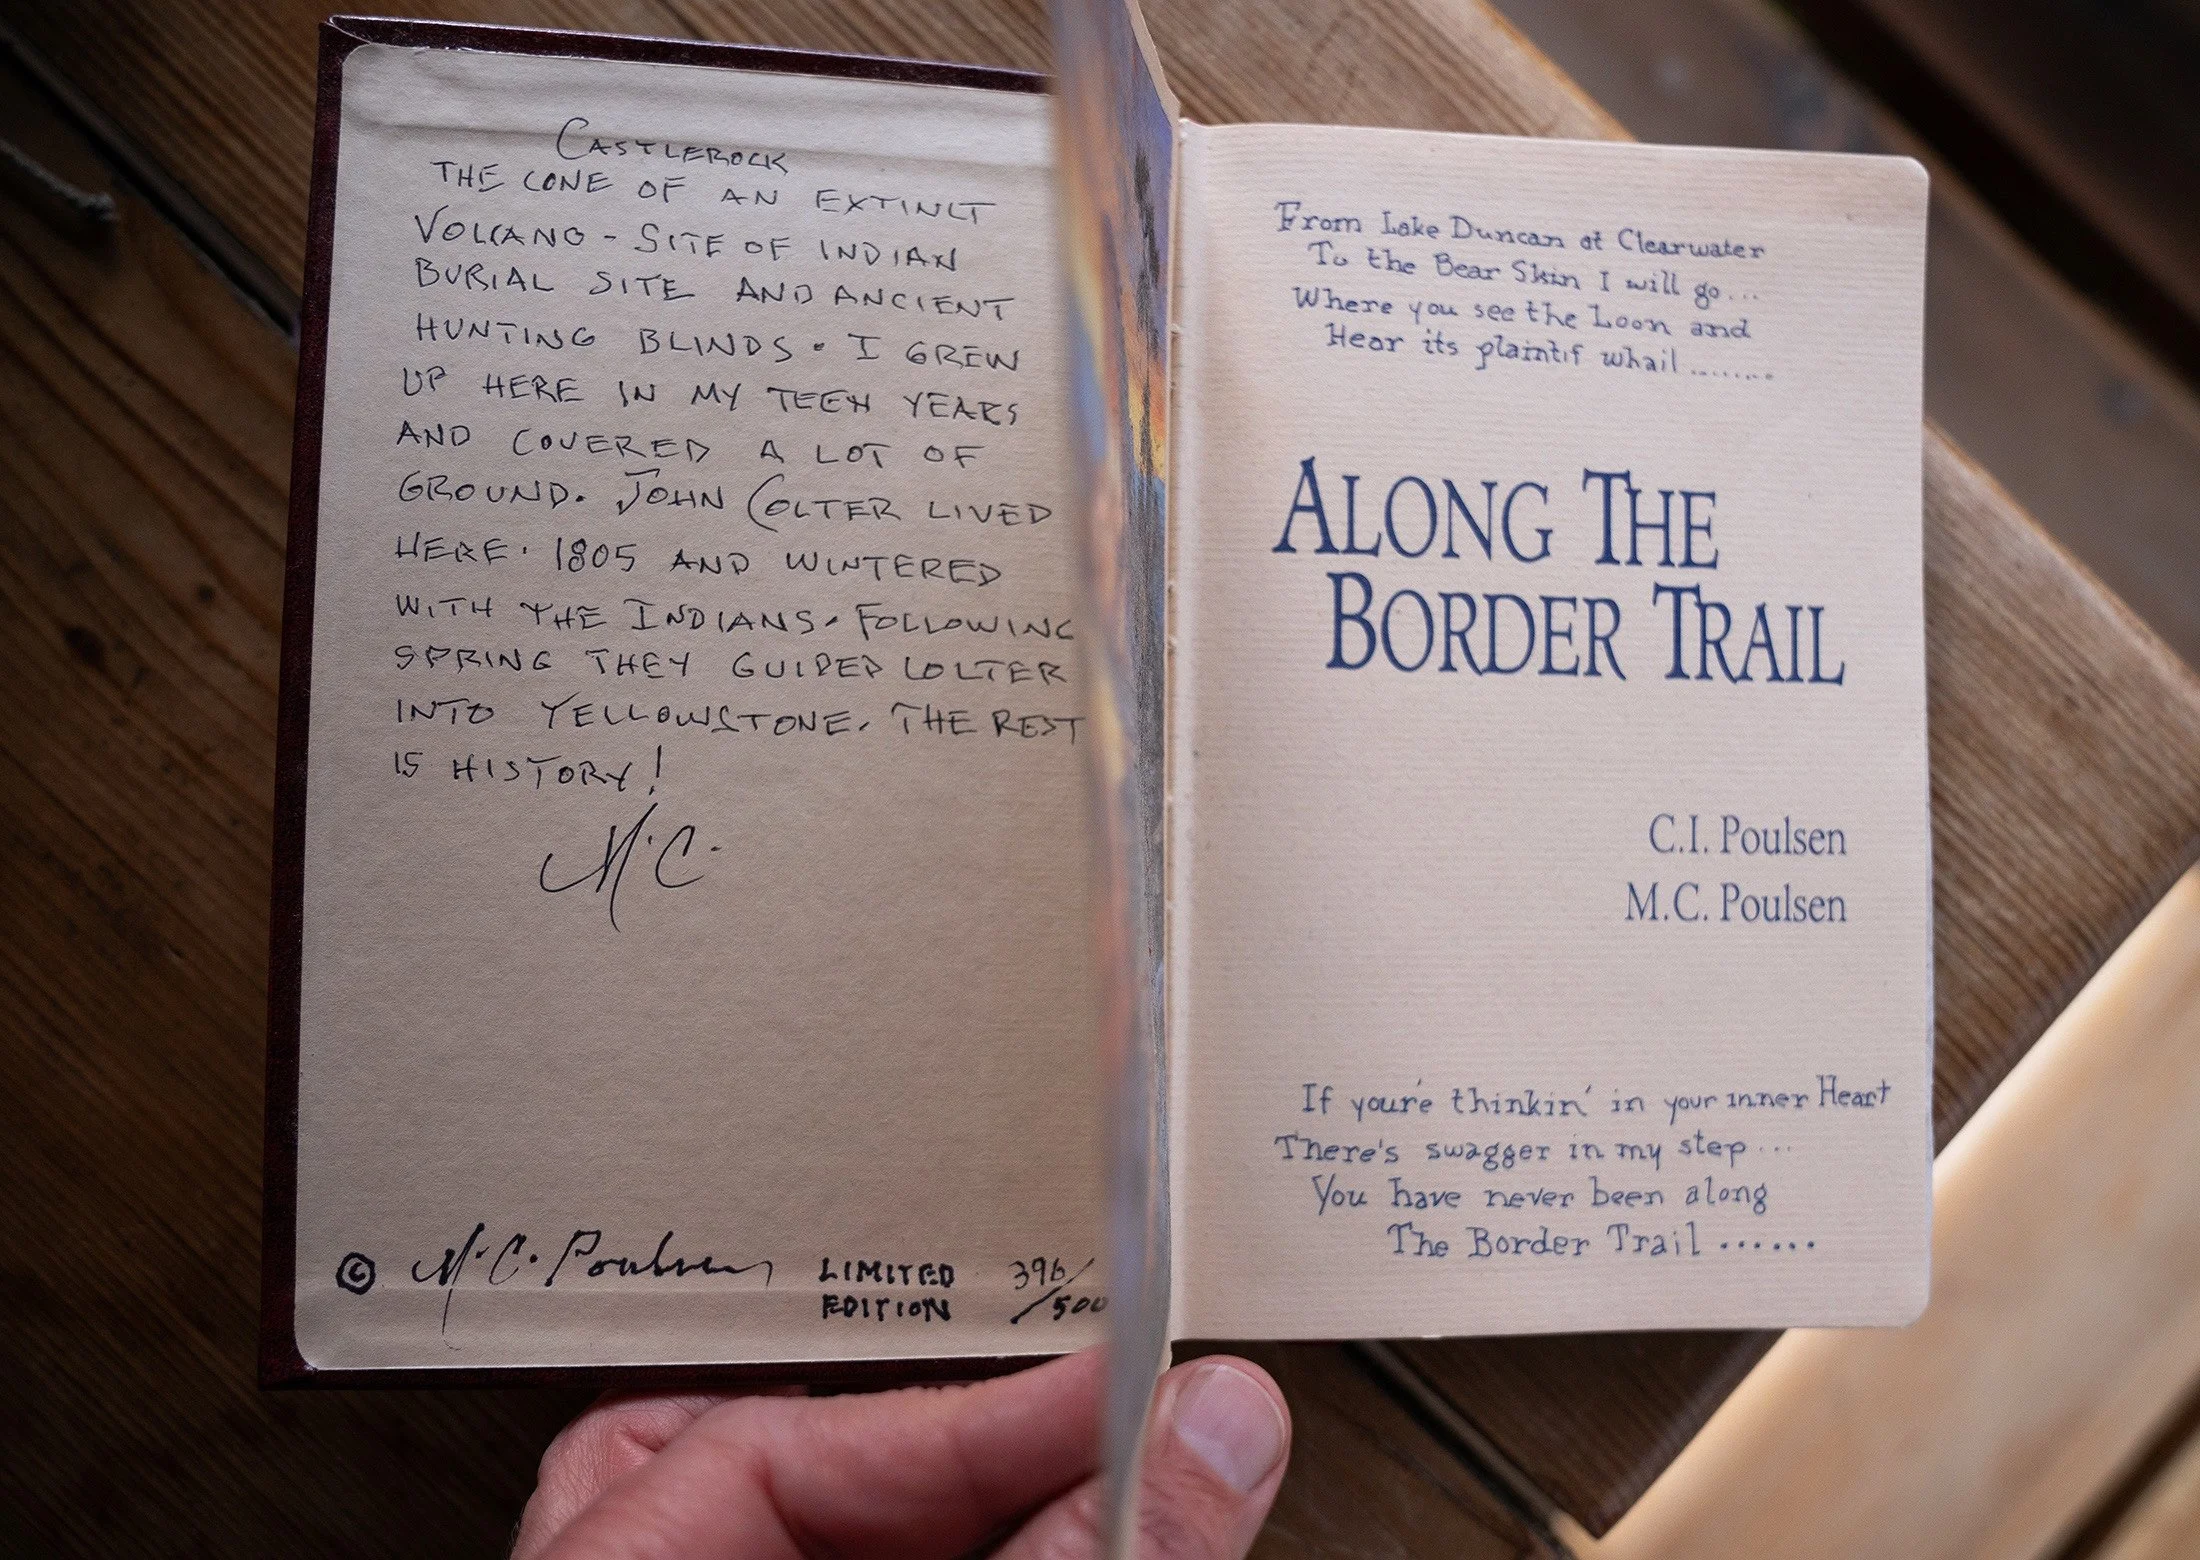 CASTLEROCK
THE CONE OF AN EXTINCT
VOLCANO - SITE OF INDIAN
BURIAL SITE AND ANCIENT
HUNTING BLINDS. I GREW
UP HERE IN MY TEEN YEARS
AND COVERED A LOT OF
GROUND. JOHN COLTER LIVED
HERE. 1805 AND WINTERED
WITH THE INDIANS. FOLLOWING
SPRING THEY GUIDED COLTER
INTO YELLOWSTONE. THE REST
IS HISTORY!
M.C.
© M.C. Poulsen LIMITED EDITION 396/500
From Lake Duncan at Clearwater
To the Bear Skin I will go...
Where you see the Loon and
Hear its plaintif whail ........
ALONG THE
BORDER TRAIL
C.I. Poulsen
M.C. Poulsen
If you're thinkin' in your inner Heart
There's swagger in my step....
You have never been along
The Border Trail ......